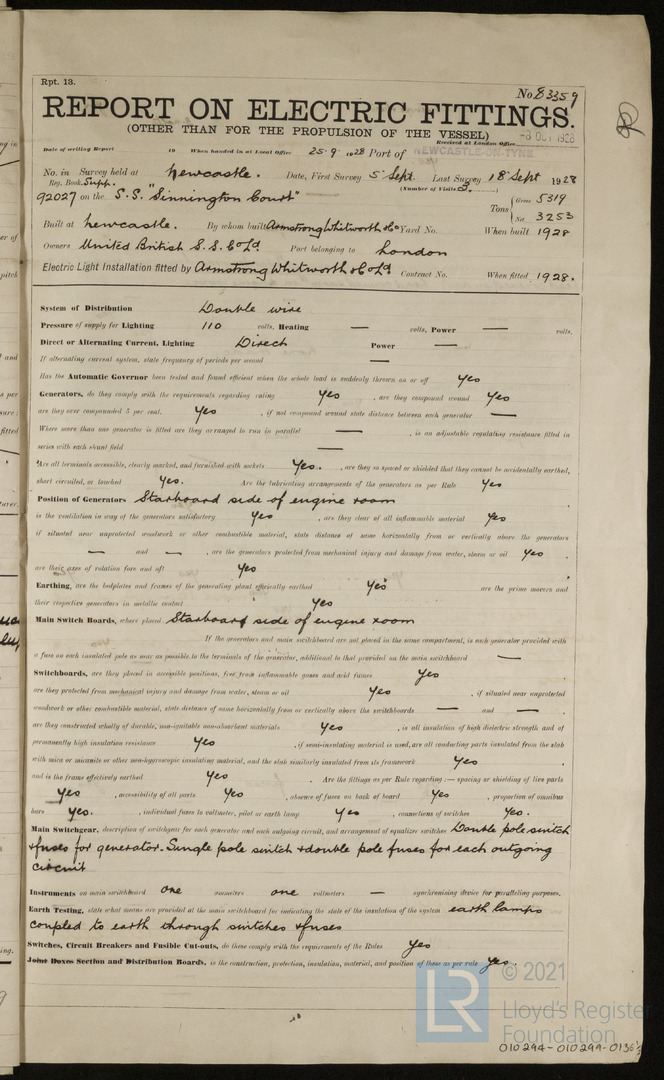 Rpt. 13.
No. 83359
REPORT ON ELECTRIC FITTINGS.
(OTHER THAN FOR THE PROPULSION OF THE VESSEL)
Received at London Office
-3 OCT 1928
Date of writing Report 19 When handed in at Local Office 25.9.1928 Port of NEWCASTLE-ON-TYNE
No. in Survey held at Newcastle. Date, First Survey 5 Sept. Last Survey 18 Sept 1928
Reg. Book. Supp. (Number of Visits 3.)
92027 on the S.S. "Sinnington Court" Tons Gross 5319 Net 3253
Built at Newcastle. By whom built Armstrong Whitworth & Co Yard No. When built 1928
Owners United British S.S. Co Ld. Port belonging to London
Electric Light Installation fitted by Armstrong Whitworth & Co Ld. Contract No. When fitted 1928.
System of Distribution Double wire
Pressure of supply for Lighting 110 volts, Heating — volts, Power — volts.
Direct or Alternating Current, Lighting Direct Power —
If alternating current system, state frequency of periods per second —
Has the Automatic Governor been tested and found efficient when the whole load is suddenly thrown on or off Yes
Generators, do they comply with the requirements regarding rating Yes, are they compound wound Yes
are they over compounded 5 per cent. Yes, if not compound wound state distance between each generator —
Where more than one generator is fitted are they arranged to run in parallel —, is an adjustable regulating resistance fitted in
series with each shunt field —
Are all terminals accessible, clearly marked, and furnished with sockets Yes., are they so spaced or shielded that they cannot be accidentally earthed,
short circuited, or touched Yes. Are the lubricating arrangements of the generators as per Rule Yes
Position of Generators Starboard side of engine room
is the ventilation in way of the generators satisfactory Yes, are they clear of all inflammable material Yes
if situated near unprotected woodwork or other combustible material, state distance of same horizontally from or vertically above the generators
— and —, are the generators protected from mechanical injury and damage from water, steam or oil Yes.
are their axes of rotation fore and aft Yes
Earthing, are the bedplates and frames of the generating plant efficiently earthed Yes are the prime movers and
their respective generators in metallic contact Yes
Main Switch Boards, where placed Starboard side of engine room
If the generators and main switchboard are not placed in the same compartment, is each generator provided with
a fuse on each insulated pole as near as possible to the terminals of the generator, additional to that provided on the main switchboard —
Switchboards, are they placed in accessible positions, free from inflammable gases and acid fumes Yes
are they protected from mechanical injury and damage from water, steam or oil Yes, if situated near unprotected
woodwork or other combustible material, state distance of same horizontally from or vertically above the switchboards — and —
are they constructed wholly of durable, non-ignitable non-absorbent materials Yes, is all insulation of high dielectric strength and of
permanently high insulation resistance Yes, if semi-insulating material is used, are all conducting parts insulated from the slab
with mica or micanite or other non-hygroscopic insulating material, and the slab similarly insulated from its framework Yes.
and is the frame effectively earthed Yes. Are the fittings as per Rule regarding:— spacing or shielding of live parts
Yes, accessibility of all parts Yes, absence of fuses on back of board Yes, proportion of omnibus
bars Yes., individual fuses to voltmeter, pilot or earth lamp Yes, connections of switches Yes.
Main Switchgear, description of switchgear for each generator and each outgoing circuit, and arrangement of equalizer switches Double pole switch
& fuses for generator. Single pole switch & double pole fuses for each outgoing
circuit
Instruments on main switchboard one ammeters one voltmeters — synchronising device for paralleling purposes.
Earth Testing, state what means are provided at the main switchboard for indicating the state of the insulation of the system earth lamps
coupled to earth through switches & fuses
Switches, Circuit Breakers and Fusible Cut-outs, do these comply with the requirements of the Rules Yes
Joint Boxes Section and Distribution Boards, is the construction, protection, insulation, material, and position of these as per rule Yes.
© 2021
LR
Lloyd's Register
Foundation
010294-010299-0136